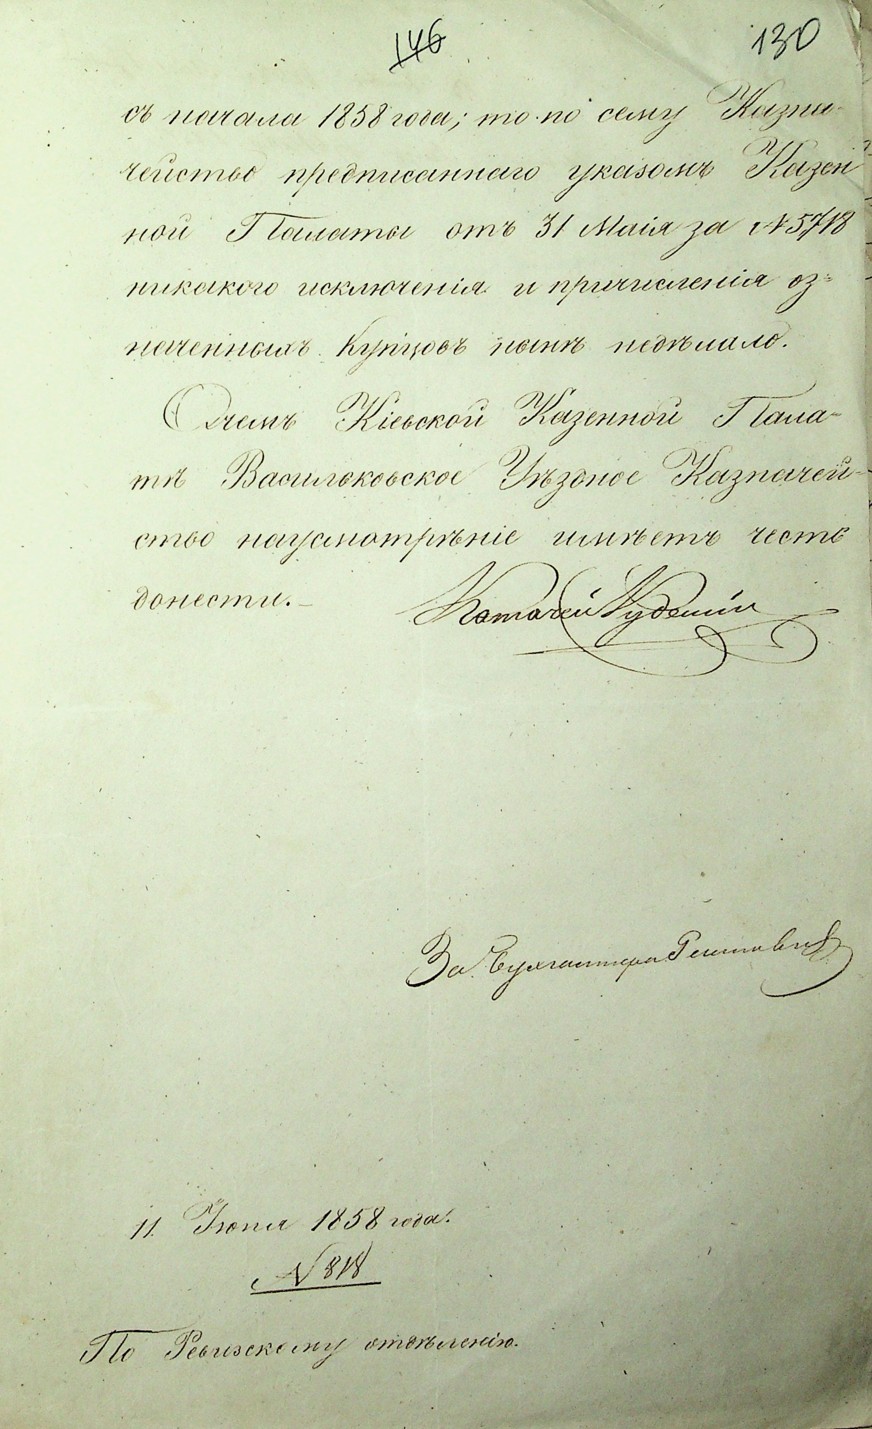 146
130
съ начала 1858 года; то по сему Казна-
чейство предписаннаго указомъ Казен
ной Палаты отъ 31 Маія за №5718
никакого исключенія и причисленія оз=
наченныхъ Купцовъ нынѣ недѣлало.
Очемъ Кіевской Казенной Пала-
тѣ Васильковское Уѣздное Казначей-
ство наусмотрѣніе имѣетъ честь
донести.
За Бухгалтера
11 Іюня 1858 года.
№ 818
По Ревизскому отдѣленію.